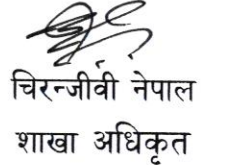 चिरन्जीवी नेपाल
शाखा अधिकृत